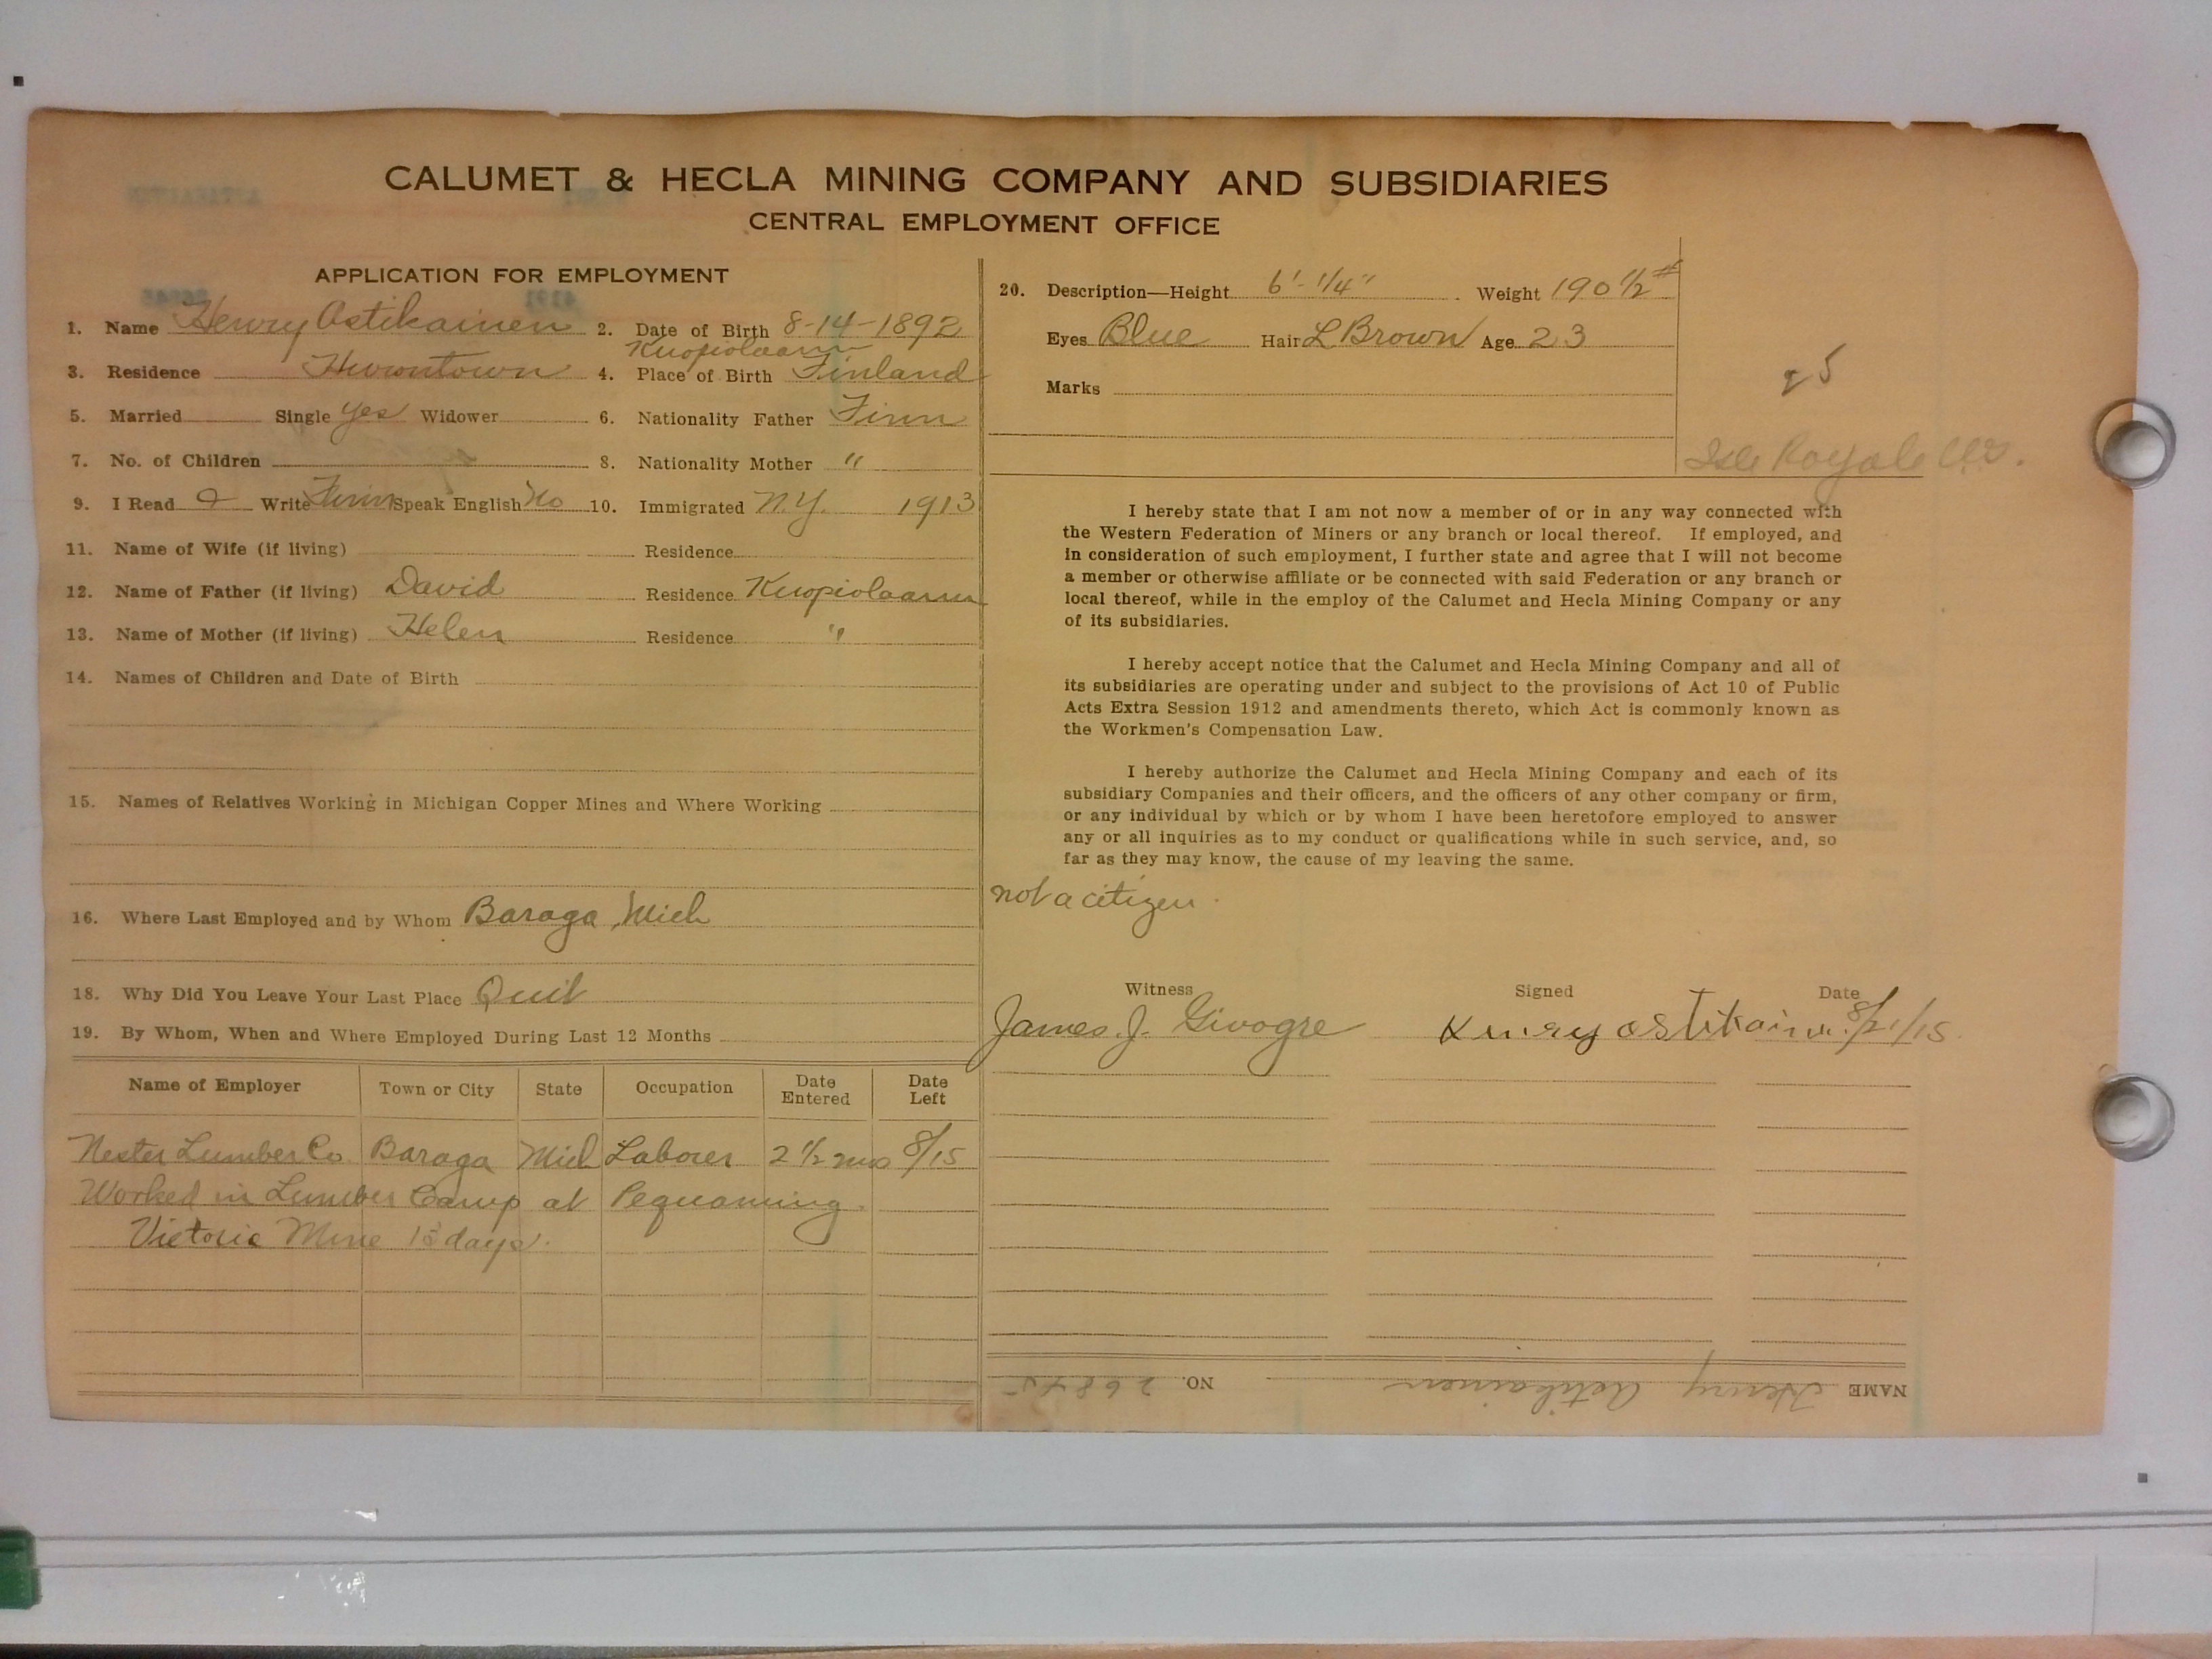 CALUMET & HECLA MINING COMPANY AND SUBSIDIARIES
CENTRAL EMPLOYMENT OFFICE
APPLICATION FOR EMPLOYMENT
1. Name Henry Ostikainen 2. Date of Birth 8-14-1892
Kuopiolaani
3. Residence Hurontown 4. Place of Birth Finland
5. Married Single Yes Widower 6. Nationality Father Finn
7. No. of Children 8. Nationality Mother "
9. I Read & Write Finn Speak English No 10. Immigrated N.Y. 1913
11. Name of Wife (if living) Residence
12. Name of Father (if living) David Residence Kuopiolaani
13. Name of Mother (if living) Helen Residence "
14. Names of Children and Date of Birth
15. Names of Relatives Working in Michigan Copper Mines and Where Working
16. Where Last Employed and by Whom Baraga, Mich
18. Why Did You Leave Your Last Place Quit
19. By Whom, When and Where Employed During Last 12 Months
Name of Employer Town or City State Occupation Date Entered Date Left
Nester Lumber Co. Baraga Mich Laborer 2 1/2 mos 8/15
Worked in Lumber Camp at Pequaming.
Victoria Mine 13 days.
20. Description—Height 6'-1/4" Weight 190 1/2 #
Eyes Blue Hair L Brown Age 23
Marks
Isle Royale
I hereby state that I am not now a member of or in any way connected with
the Western Federation of Miners or any branch or local thereof. If employed, and
in consideration of such employment, I further state and agree that I will not become
a member or otherwise affiliate or be connected with said Federation or any branch or
local thereof, while in the employ of the Calumet and Hecla Mining Company or any
of its subsidiaries.
I hereby accept notice that the Calumet and Hecla Mining Company and all of
its subsidiaries are operating under and subject to the provisions of Act 10 of Public
Acts Extra Session 1912 and amendments thereto, which Act is commonly known as
the Workmen's Compensation Law.
I hereby authorize the Calumet and Hecla Mining Company and each of its
subsidiary Companies and their officers, and the officers of any other company or firm,
or any individual by which or by whom I have been heretofore employed to answer
any or all inquiries as to my conduct or qualifications while in such service, and, so
far as they may know, the cause of my leaving the same.
not a citizen.
Witness Signed Date
James. J. Givogre Henry Ostikainen 8/21/15
NAME Henry Ostikainen NO. 26845